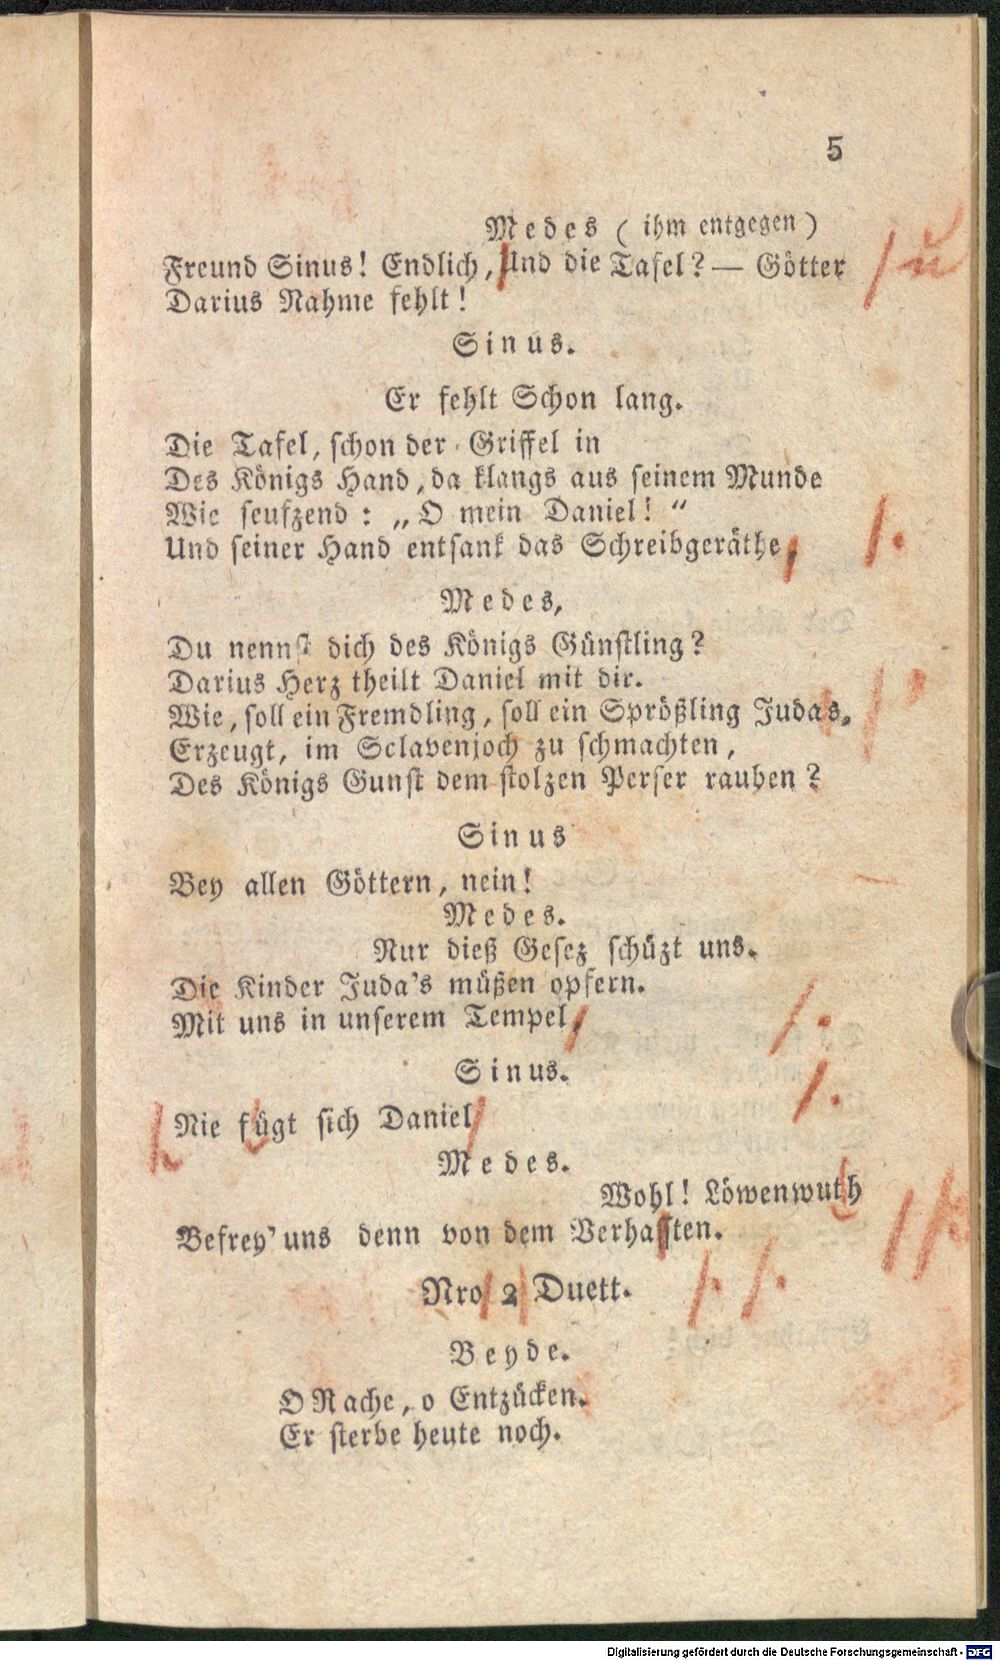 5
Medes ( ihm entgegen )
Freund Sinus! Endlich, Und die Tafel? — Götter
Darius Nahme fehlt!
Sinus.
Er fehlt Schon lang.
Die Tafel, schon der Griffel in
Des Königs Hand, da klangs aus seinem Munde
Wie seufzend : „O mein Daniel! “
Und seiner Hand entsank das Schreibgeräthe,
Medes,
Du nennst dich des Königs Günstling?
Darius Herz theilt Daniel mit dir.
Wie, soll ein Fremdling, soll ein Sprößling Judas,
Erzeugt, im Sclavenjoch zu schmachten,
Des Königs Gunst dem stolzen Perser rauben?
Sinus
Bey allen Göttern, nein!
Medes.
Nur dieß Gesez schüzt uns.
Die Kinder Juda's müßen opfern.
Mit uns in unserem Tempel,
Sinus.
Nie fügt sich Daniel
Medes.
Wohl! Löwenwuth
Befrey' uns denn von dem Verhassten.
Nro 2 Duett.
Beyde.
O Rache, o Entzücken.
Er sterbe heute noch.
Digitalisierung gefördert durch die Deutsche Forschungsgemeinschaft - DFG